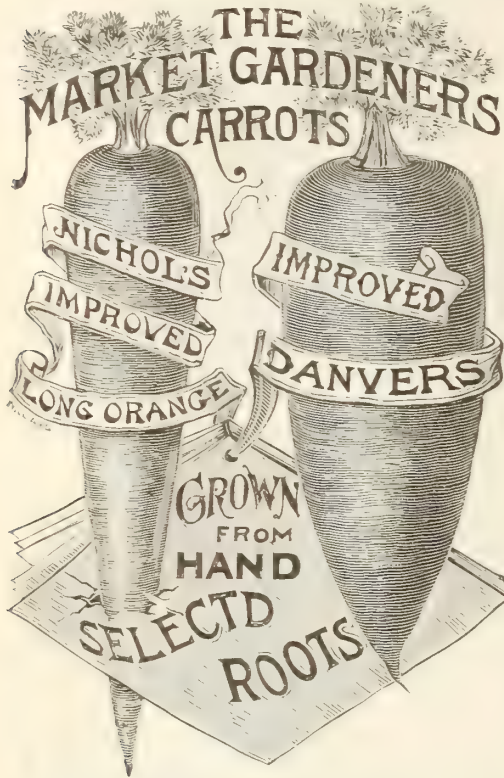 THE
MARKET GARDENERS
CARROTS
NICHOL'S
IMPROVED
LONG ORANGE
IMPROVED
DANVERS
GROWN
FROM
HAND
SELECTD
ROOTS